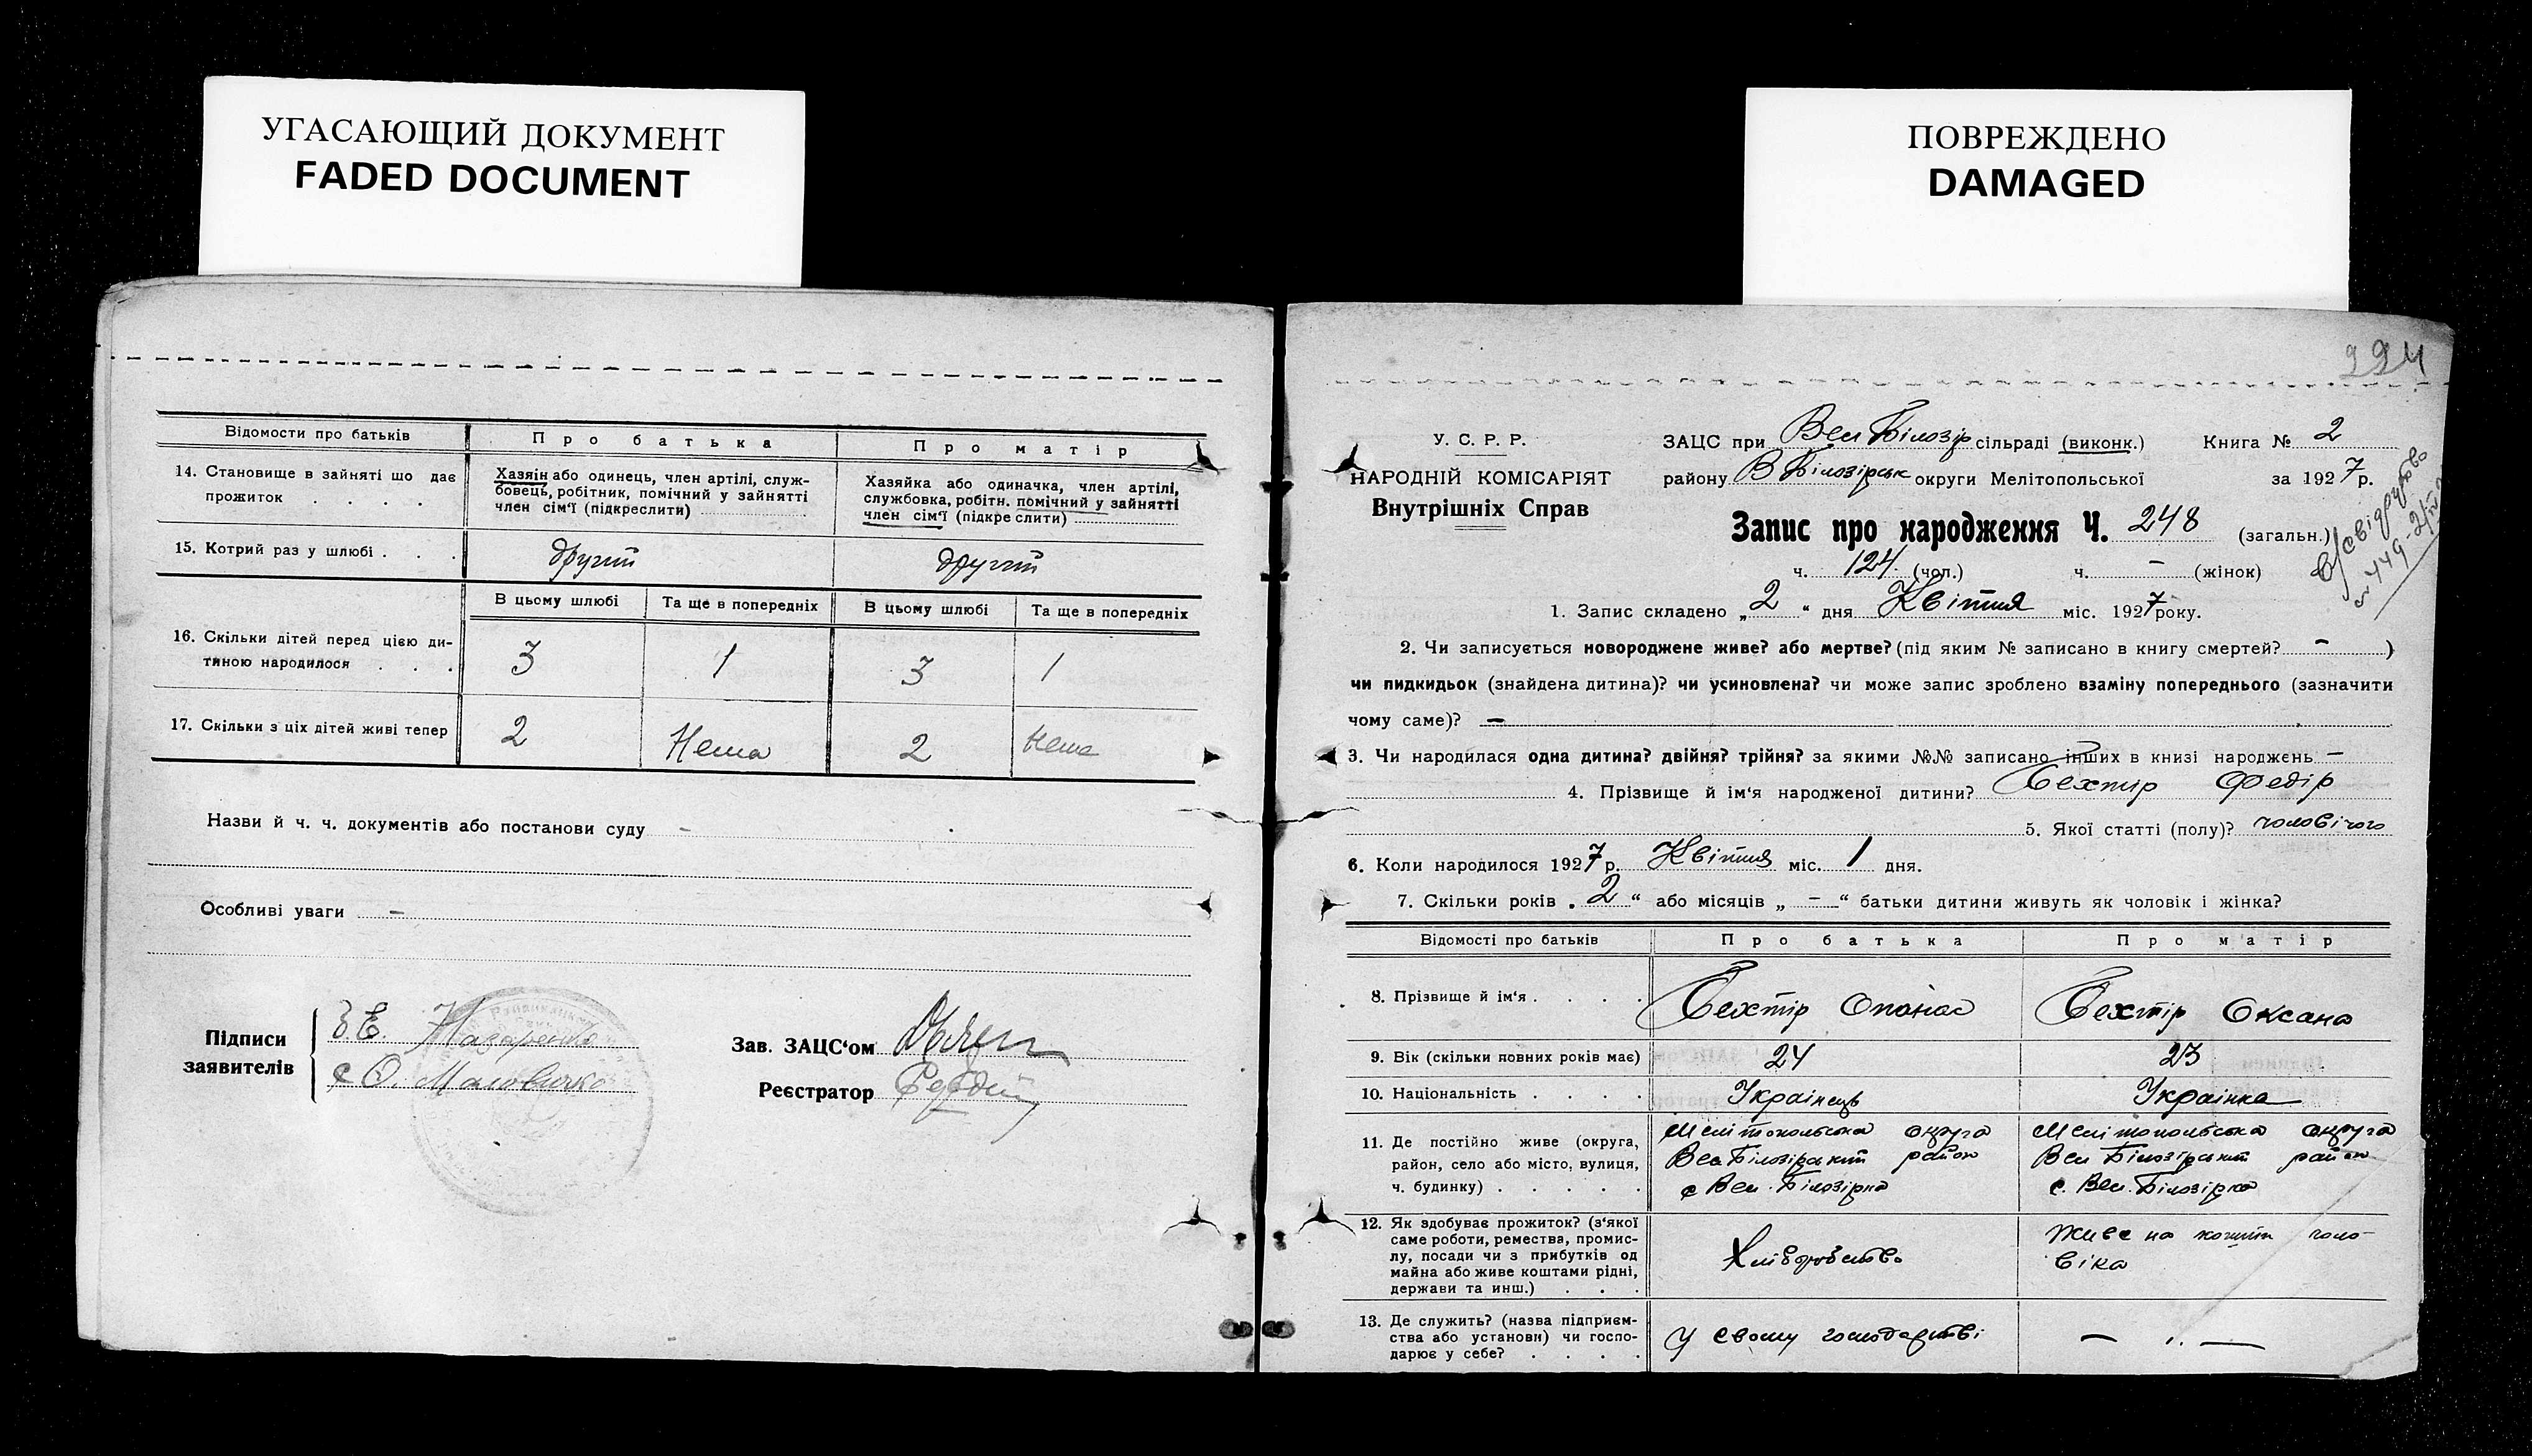 УГАСАЮЩИЙ ДОКУМЕНТ
FADED DOCUMENT
ПОВРЕЖДЕНО
DAMAGED
Відомости про батьків
Про батька
Про матір
14. Становище в зайняті що дає прожиток . . . .
Хазяін або одинець, член артілі, служ-
бовець, робітник, помічний у зайнятті
член сім'ї (підкреслити)
Хазяйка або одиначка, член артілі,
службовка, робітн. помічний у зайнятті
член сім'ї (підкреслити)
15. Котрий раз у шлюбі . . .
другий
другий
В цьому шлюбі
Та ще в попередніх
В цьому шлюбі
Та ще в попередніх
16. Скільки дітей перед цією ди-
тиною народилося . . .
3
1
3
1
17. Скільки з ціх дітей живі тепер
2
Нема
2
Нема
Назви й ч. ч. документів або постанови суду -
Особливі уваги -
Підписи
заявителів
Е. Назаренко
О.
Зав. ЗАЦС'ом
Реєстратор
224
У. С. Р. Р.
НАРОДНІЙ КОМІСАРІЯТ
Внутрішніх Справ
ЗАЦС при Вел Білозір сільраді (виконк.) Книга № 2
району В Білозірськ округи Мелітопольської за 1927 р.
Запис про народження Ч. 248 (загальн.)
ч. 124 (чол.) ч. - (жінок)
1. Запис складено „2“ дня Квітня міс. 1927 року.
2. Чи записується новороджене живе? або мертве? (під яким № записано в книгу смертей? - )
чи пидкидьок (знайдена дитина)? чи усиновлена? чи може запис зроблено взаміну попереднього (зазначити
чому саме)? —
3. Чи народилася одна дитина? двійня? трійня? за якими №№ записано інших в книзі народжень —
4. Прізвище й ім'я народженої дитини? Бехтір Федір
5. Якої статті (полу)? чоловічого
6. Коли народилося 1927 р. Квітня міс. 1 дня.
7. Скільки років „2“ або місяців „-“ батьки дитини живуть як чоловік і жінка?
Відомості про батьків
Про батька
Про матір
8. Прізвище й ім'я . . . .
Бехтір Опанас
Бехтір Оксана
9. Вік (скільки повних років має)
24
23
10. Національність . . . .
Українець
Українка
11. Де постійно живе (округа,
район, село або місто, вулиця,
ч. будинку) . . . . .
Мелітопольська округа
Вел Білозірський район
с Вел. Білозірка
Мелітопольська округа
Вел Білозірський район
с. Вел. Білозірка
12. Як здобуває прожиток? (з'якої
саме роботи, ремества, промис-
лу, посади чи з прибутків од
майна або живе коштами рідні,
держави та инш.) . . .
Хліборобство
Живе на кошти чоло-
віка
13. Де служить? (назва підприєм-
ства або установи) чи госпо-
дарює у себе? . . . .
У свому господарстві
— „ —